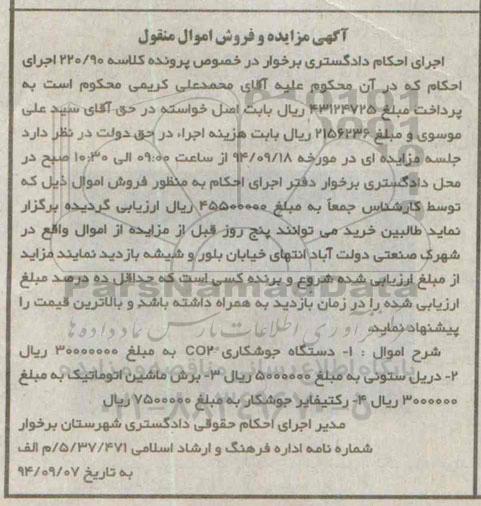 آگهی مزایده و فروش اموال منقول
اجرای احکام دادگستری برخوار در خصوص پرونده کلاسه ۲۲۰/۹۰ اجرای
احکام که در آن محکوم علیه آقای محمدعلی کریمی محکوم است به
پرداخت مبلغ ۴۳۱۲۴۷۲۵ ریال بابت اصل خواسته در حق آقای سید علی
موسوی و مبلغ ۲۱۵۶۲۳۶ ریال بابت هزینه اجراء در حق دولت در نظر دارد
جلسه مزایده ای در مورخه ۹۴/۰۹/۱۸ از ساعت ۰۹:۰۰ الی ۱۰:۳۰ صبح در
محل دادگستری برخوار دفتر اجرای احکام به منظور فروش اموال ذیل که
توسط کارشناس جمعاً به مبلغ ۴۵۵۰۰۰۰۰ ریال ارزیابی گردیده برگزار
نماید طالبین خرید می توانند پنج روز قبل از مزایده از اموال واقع در
شهرک صنعتی دولت آباد انتهای خیابان بلور و شیشه بازدید نمایند مزاید
از مبلغ ارزیابی شده شروع و برنده کسی است که حداقل ده درصد مبلغ
ارزیابی شده را در زمان بازدید به همراه داشته باشد و بالاترین قیمت را
پیشنهاد نماید.
شرح اموال : ۱- دستگاه جوشکاری CO۲ به مبلغ ۳۰۰۰۰۰۰۰ ریال
۲- دریل ستونی به مبلغ ۵۰۰۰۰۰۰ ریال ۳- برش ماشین اتوماتیک به مبلغ
۳۰۰۰۰۰۰ ریال ۴- رکتیفایر جوشکار به مبلغ ۷۵۰۰۰۰۰ ریال
مدیر اجرای احکام حقوقی دادگستری شهرستان برخوار
شماره نامه اداره فرهنگ و ارشاد اسلامی ۵/۳۷/۴۷۱/م الف
به تاریخ ۹۴/۰۹/۰۷
ParsNamadData